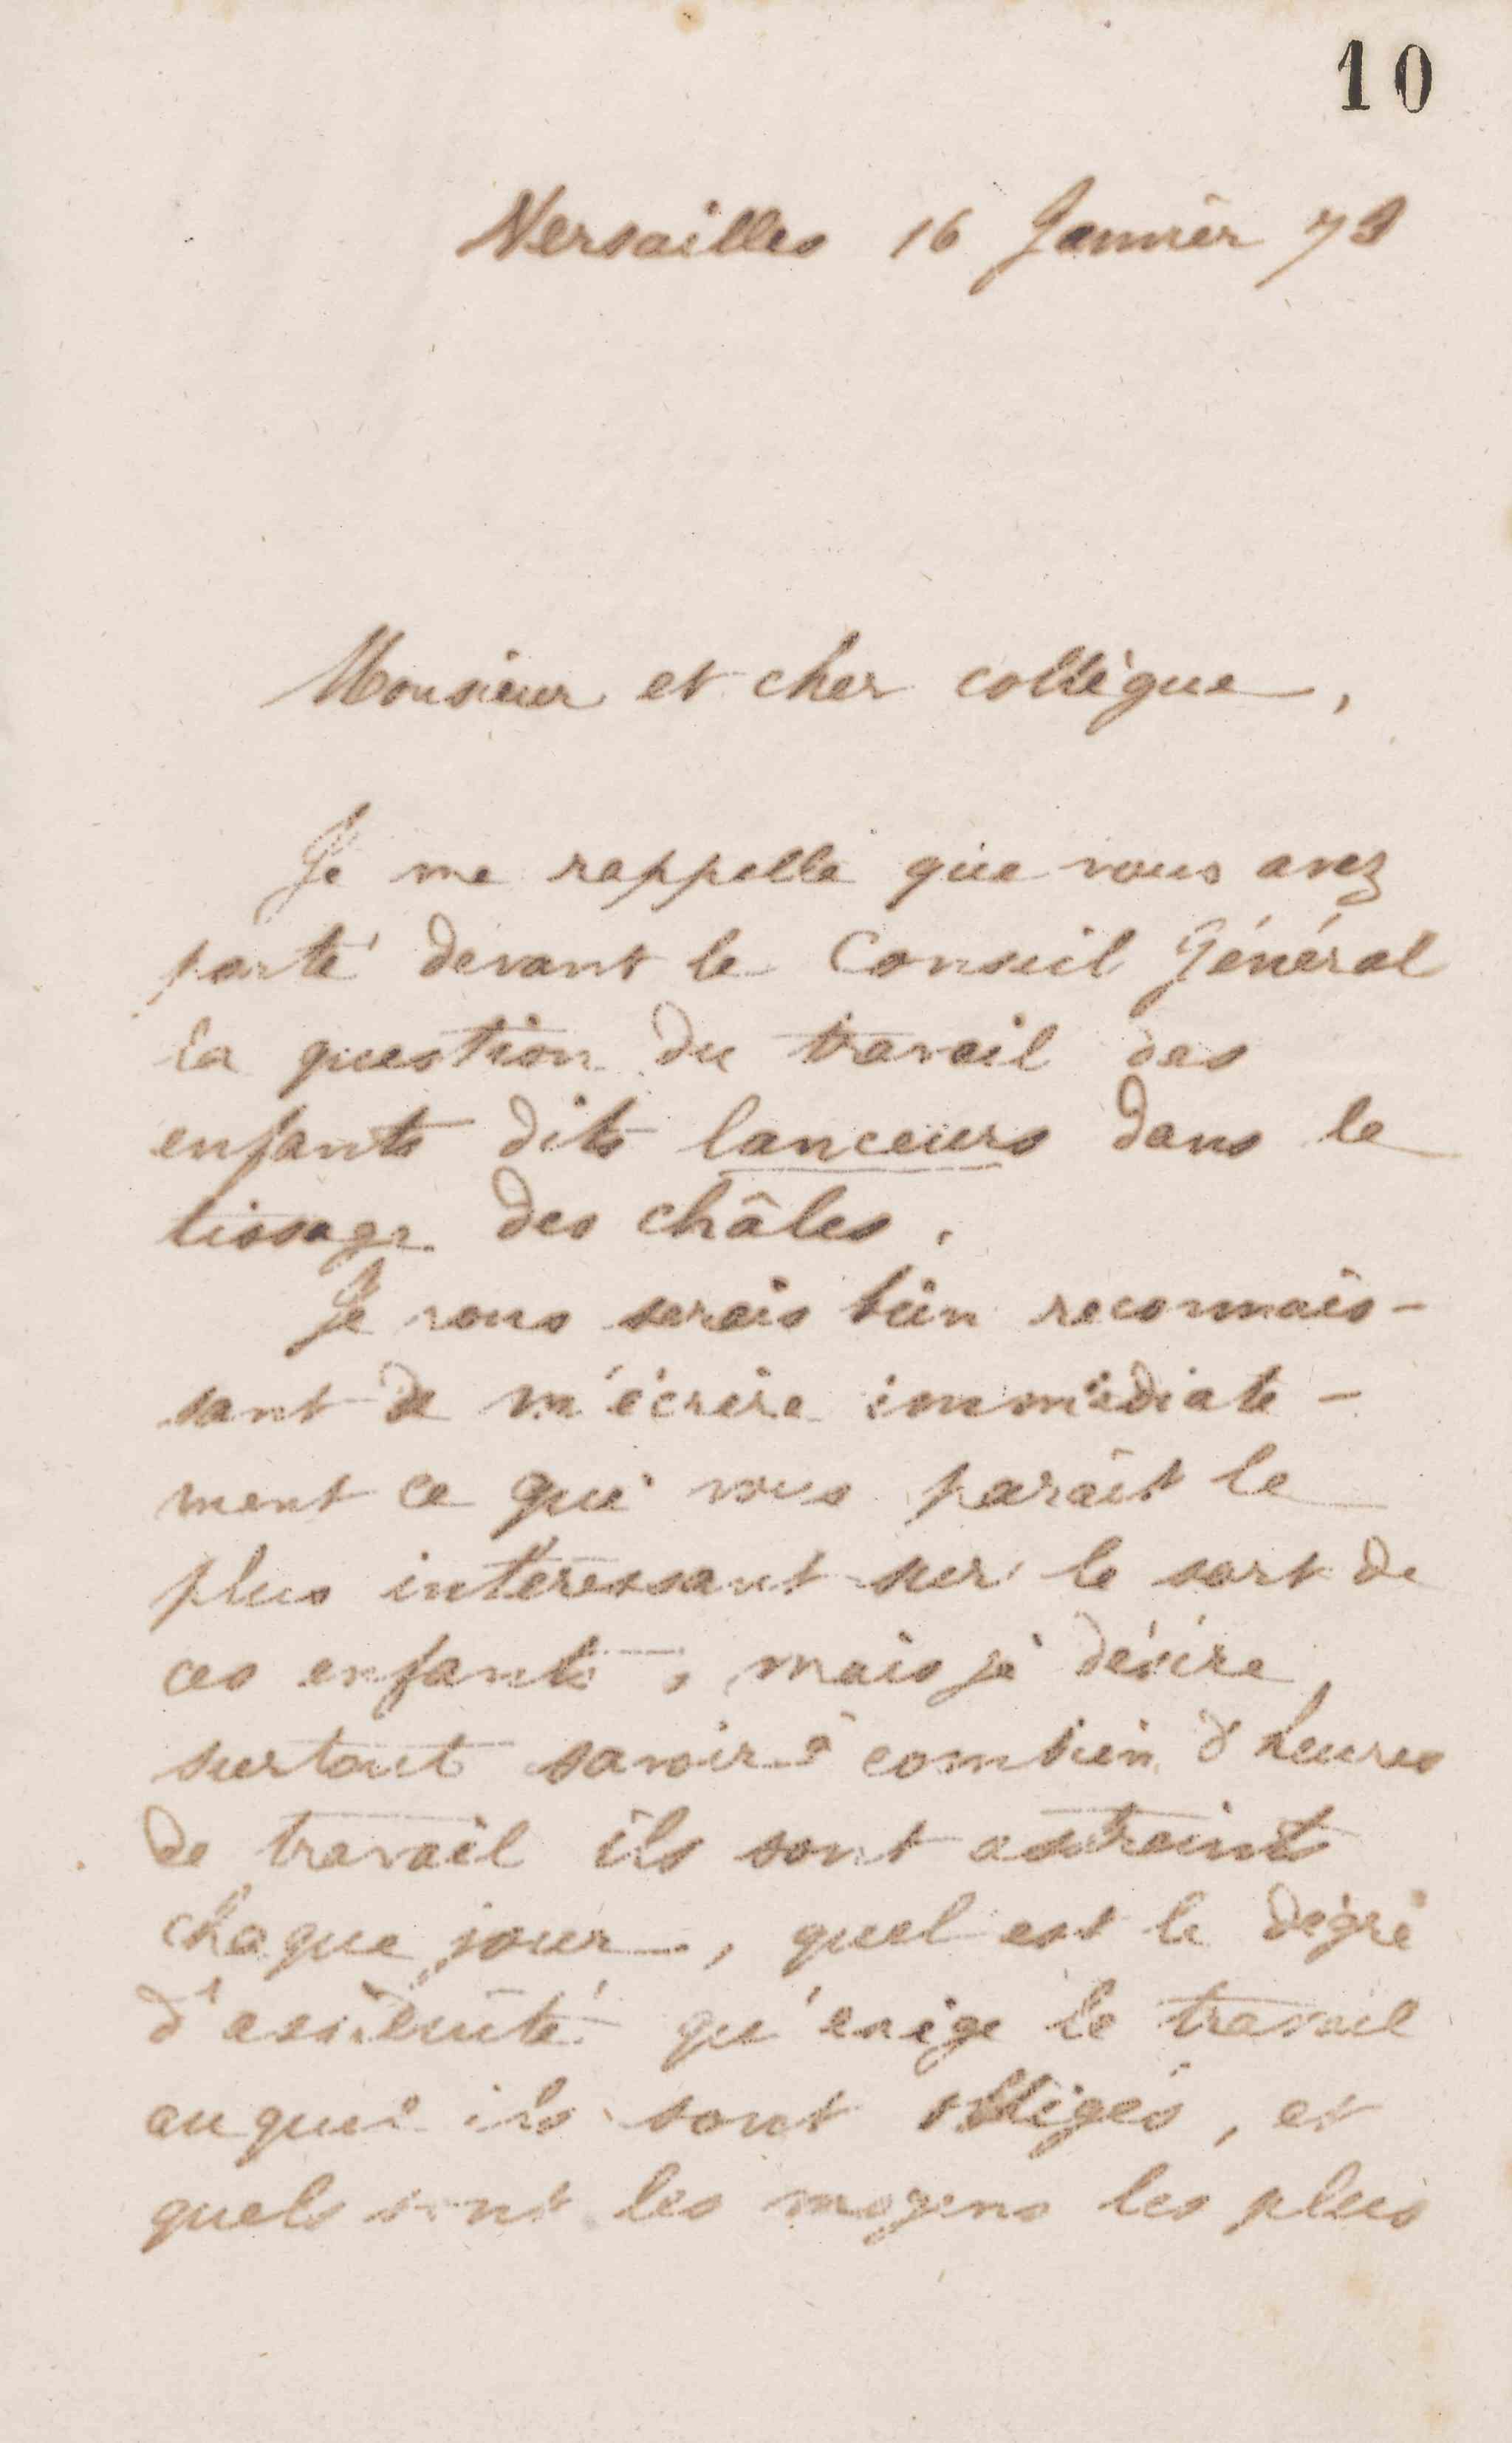 10
Versailles 16 Janvier 73
Monsieur et cher collègue,
Je me rappelle que vous avez
porté devant le Conseil Général
la question du travail des
enfants dits lanceurs dans le
tissage des châles.
Je vous serais bien reconnais-
sant de m'écrire immédiate-
ment ce qui vous parait le
plus intéressant sur le sort de
ces enfants, mais je désire
surtout savoir à combien d'heures
de travail ils sont astreints
chaque jour, quel est le dégré
d'assiduité qu'exige le travail
auquel ils sont obligés, et
quels sont les moyens les plus